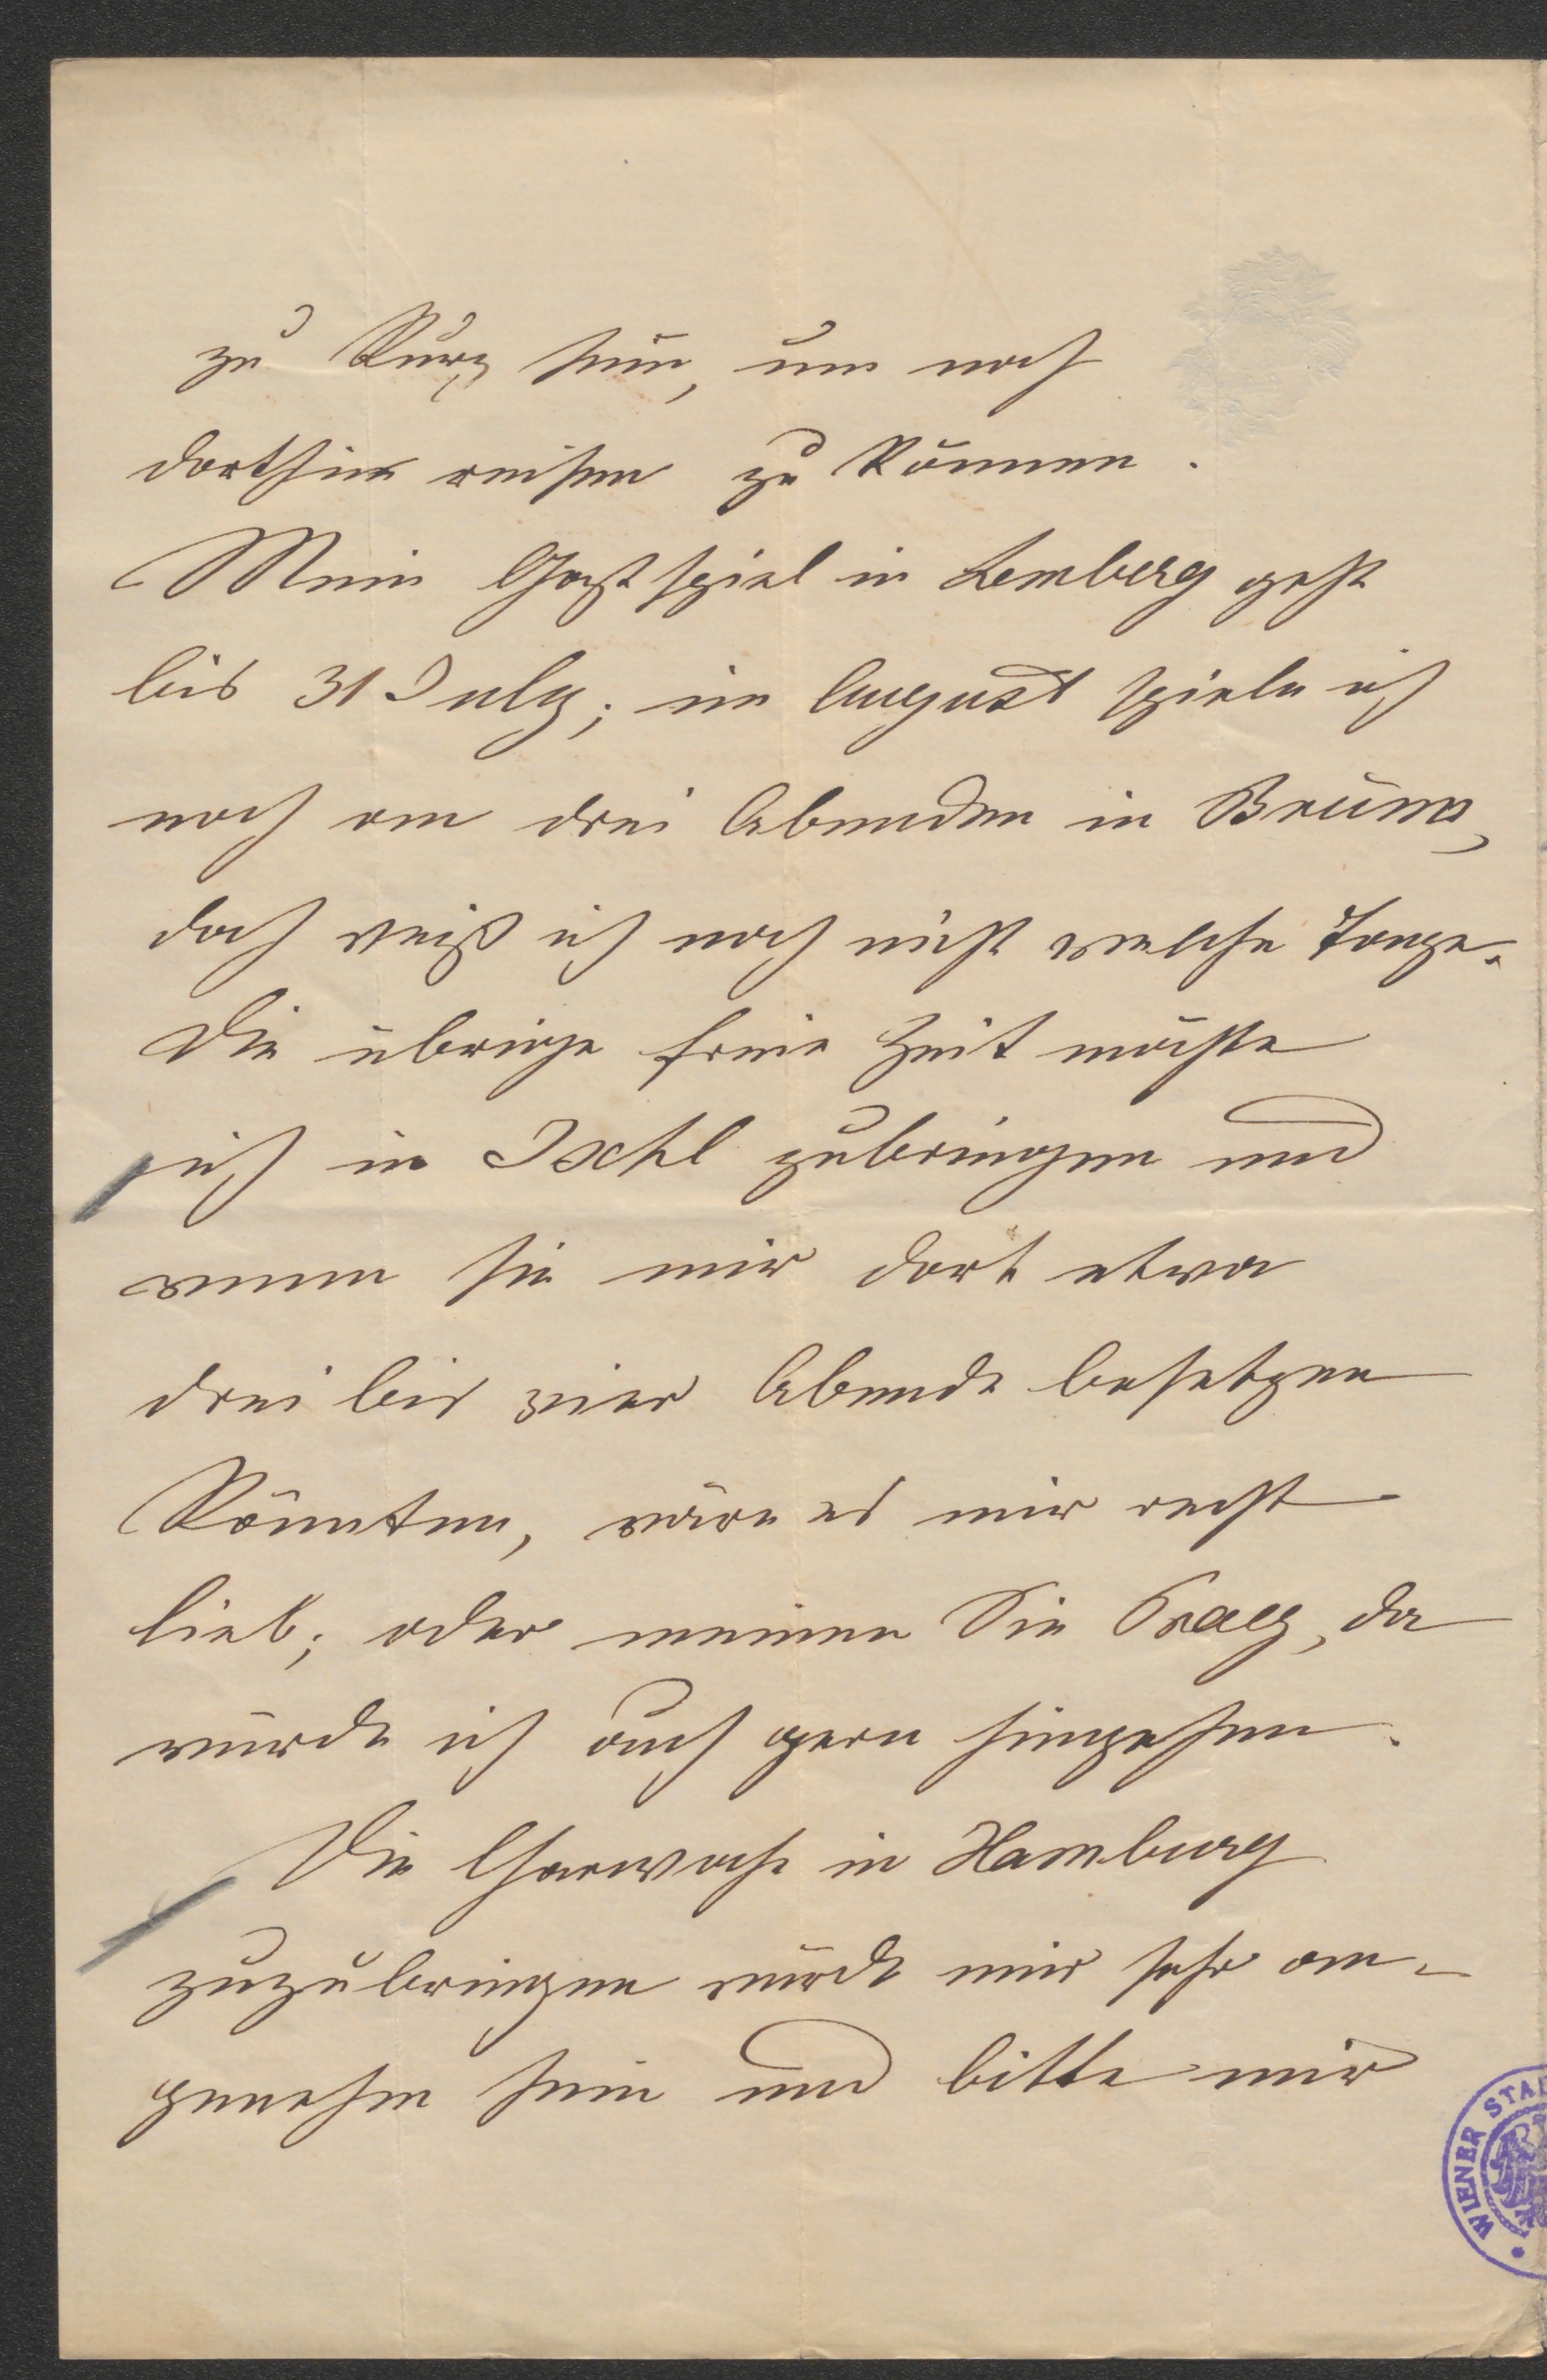 zu kurz sein, um noch
dorthin reisen zu können.
Mein Gastspiel in Lemberg geht
bis 31 July; im August spiele ich
noch an drei Abenden in Brünn,
doch weiß ich noch nicht welche Tage.
Die übrige freie Zeit möchte
ich in Ischl zubringen und
wenn sie mir dort etwa
drei bis vier Abende besetzen
könnten, wäre es mir recht
lieb; oder meinen Sie Prag, da
würde ich auch gern hingehen.
Die Charwoche in Hamburg
zuzubringen würde mir sehr an-
genehm sein und bitte mir
WIENER STA